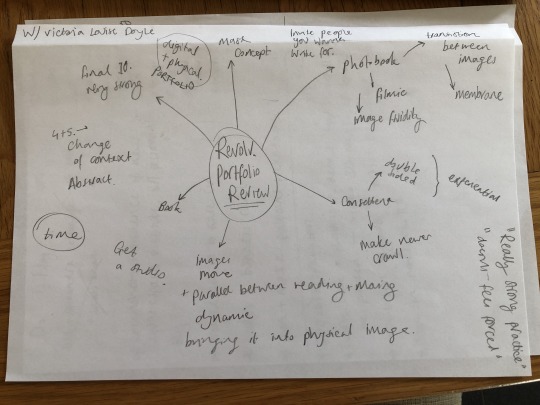 W/ Victoria Louise Doyle
digital
+ physical
PORTFOLIO
Mask
Concept
Invite people
you wanna
write for.
final 10.
very strong
photobook
filmic
image fluidity
transition
between
images
membrane
4+5. →
Change
of context
Abstract.
Revolv.
Portfolio
Review
Book
double
sided
experiential
Concertina
make newer
crawl.
time
Get
a studio.
Images
move
+ parallel between reading + moving
dynamic
bringing it into physical image.
"Really strong practice"
doesn't feel forced"